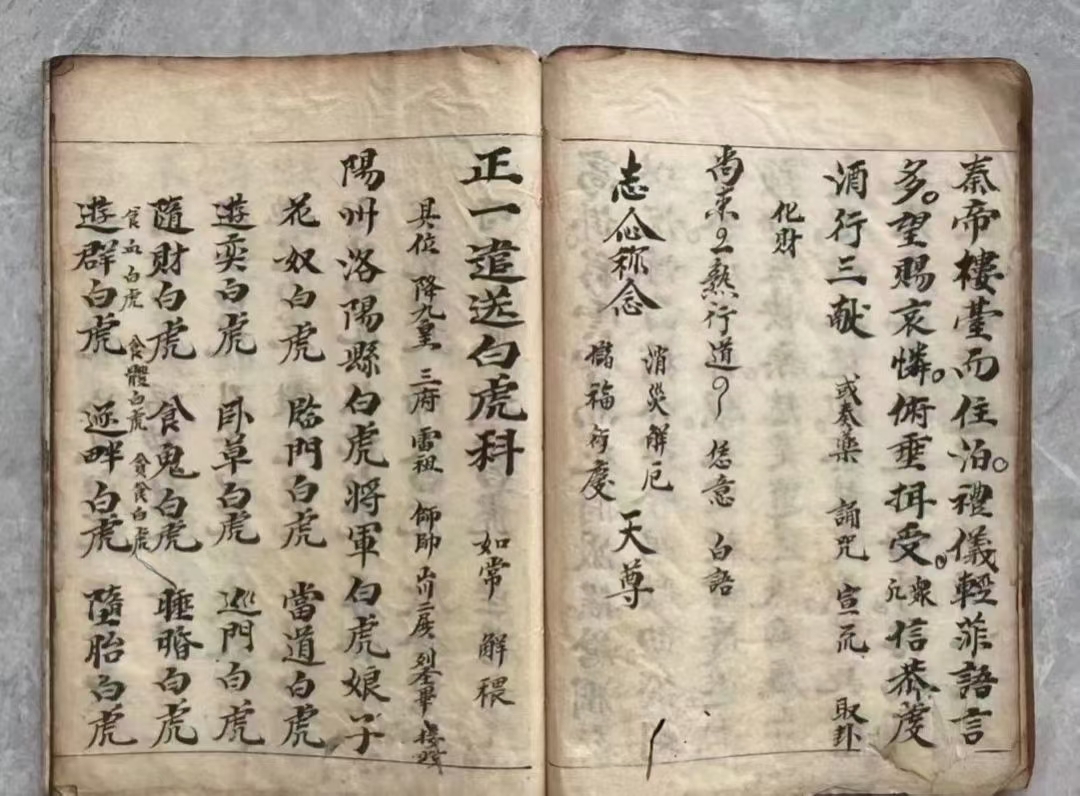 秦帝樓臺而住泊禮儀輕菲語言
多望賜哀憐俯垂揖受眾信恭虔
酒行三献 或奏樂 誦咒 宣疏 取卦
化財
尚来 行道 恁意 白語
志心称念 消災解厄 福行慶 天尊
正一遣送白虎科 如常 解穢
具位 降九皇 三府 雷祖 師帥
陽州洛陽縣白虎將軍白虎娘子
花奴白虎 臨門白虎 當道白虎
遊奕白虎 卧草白虎 巡門白虎
隨財白虎 食鬼白虎 睡昏白虎
食血白虎 食體白虎 食白虎
遊群白虎 逆畔白虎 墮胎白虎